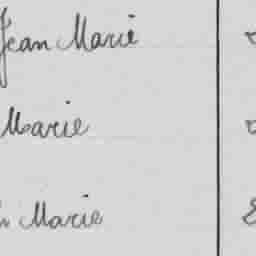 Jean Marie
Marie
Marie